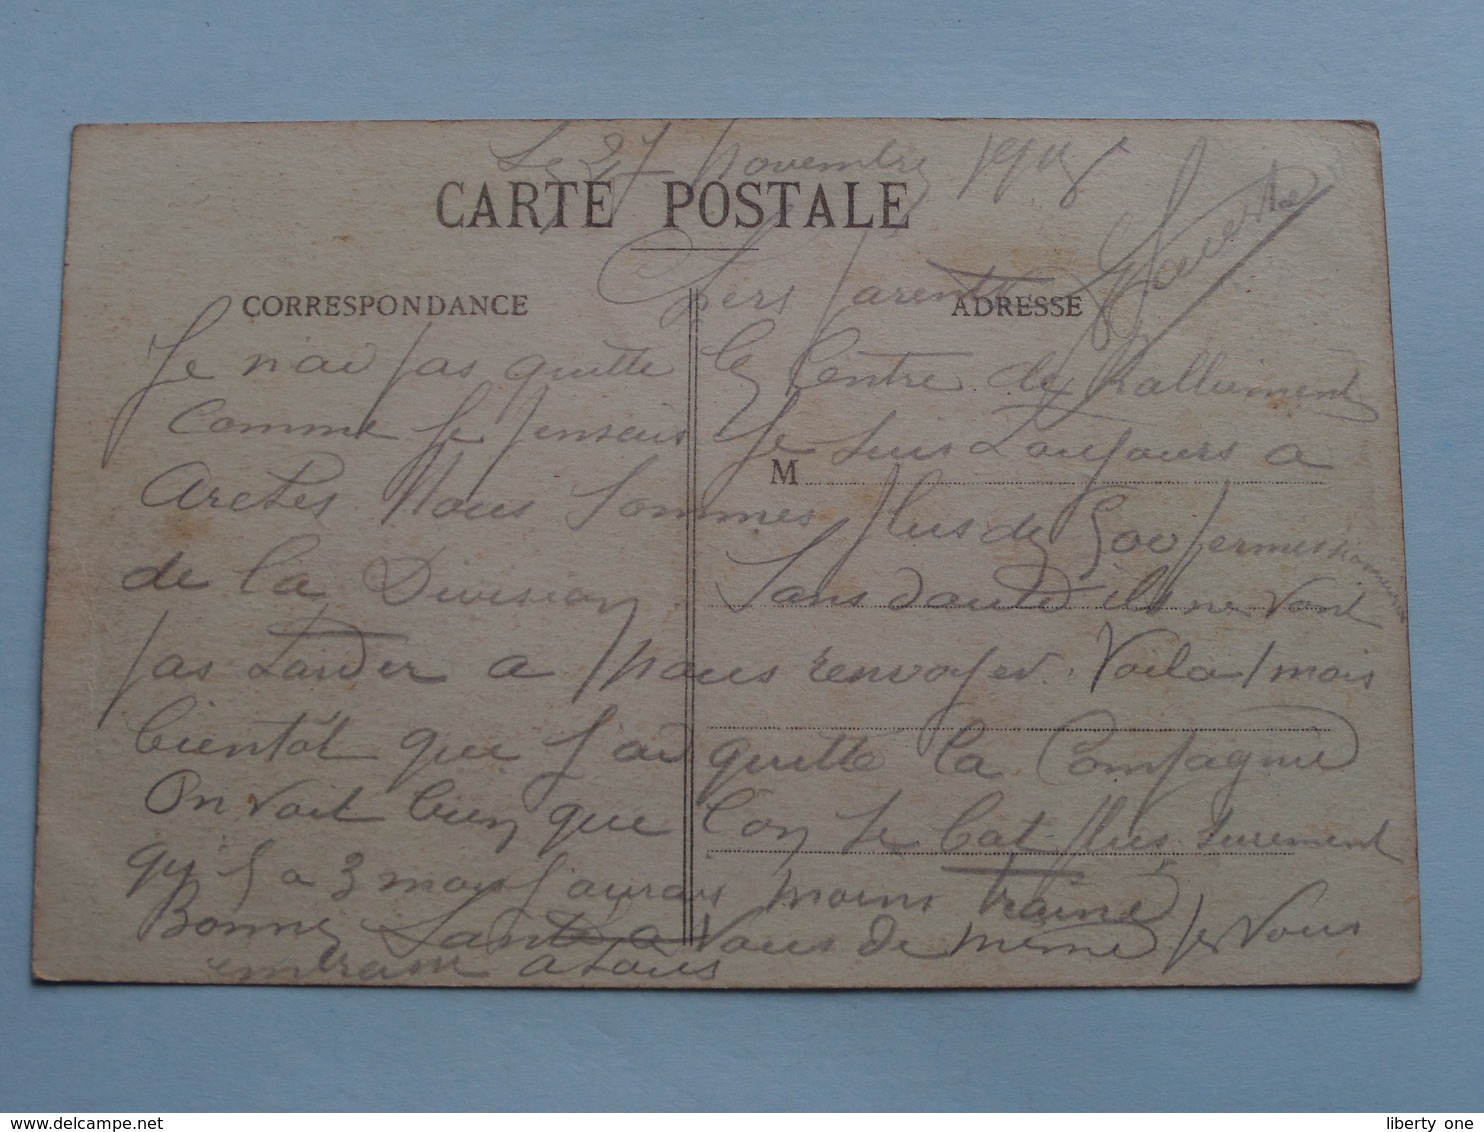 Le 27 Novembre 1918
CARTE POSTALE
Chers Parents
CORRESPONDANCE
ADRESSE
Je n'ai pas quitté le Centre de Ralliement
Comme je pensais Je suis Toujours a
M
Arches Nous Sommes plus de 500 permissionnaires
de la Division. Sans doute ils ne vont
pas tarder a nous renvoyer. Voila 1 mois
bientôt que j'ai quitté la Compagnie
On voit bien que l'on se bat plus surement
qu'il y a 3 mois j'aurais moins trainé
Bonne Santé a Vous de même je Vous
embrasse a tous
delcampe.net
liberty one